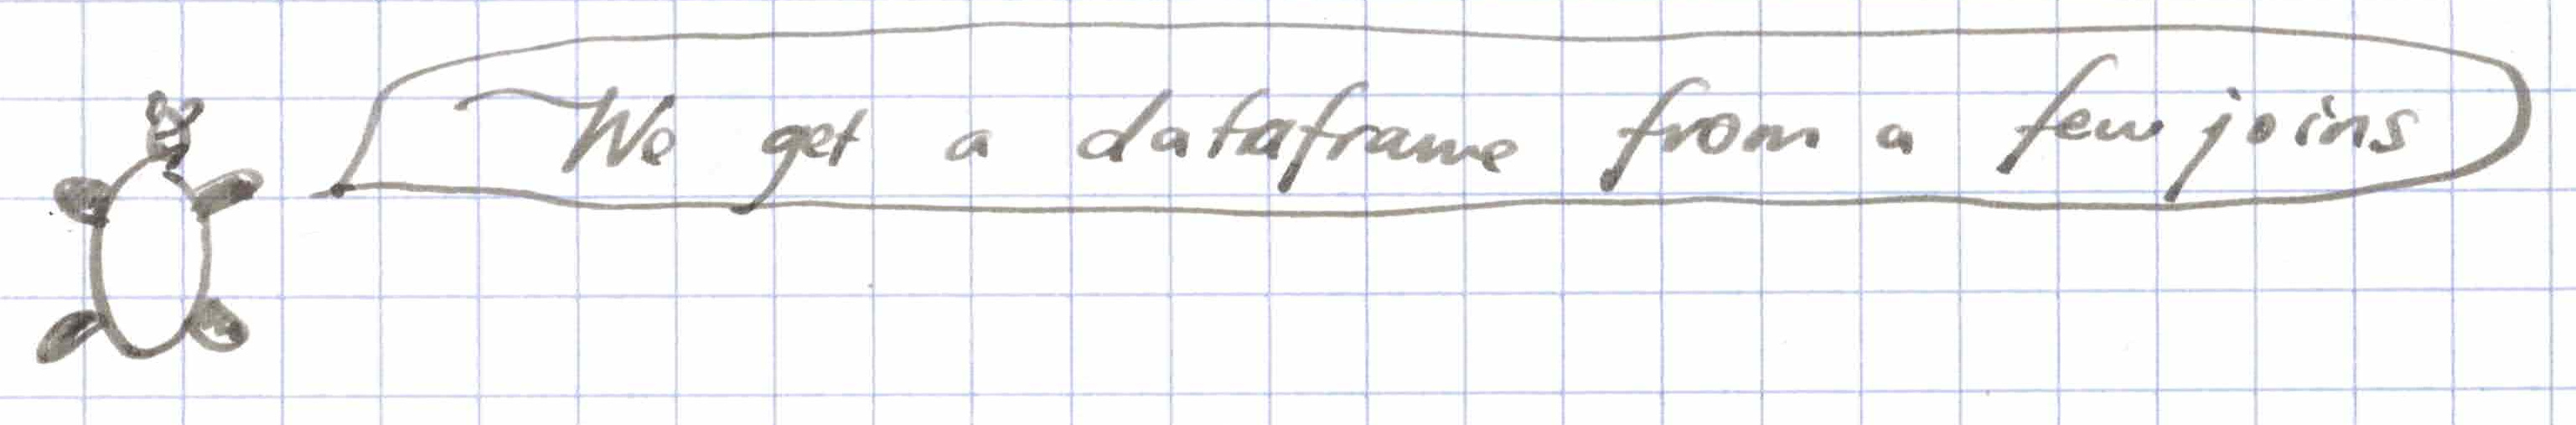 We get a dataframe from a few joins